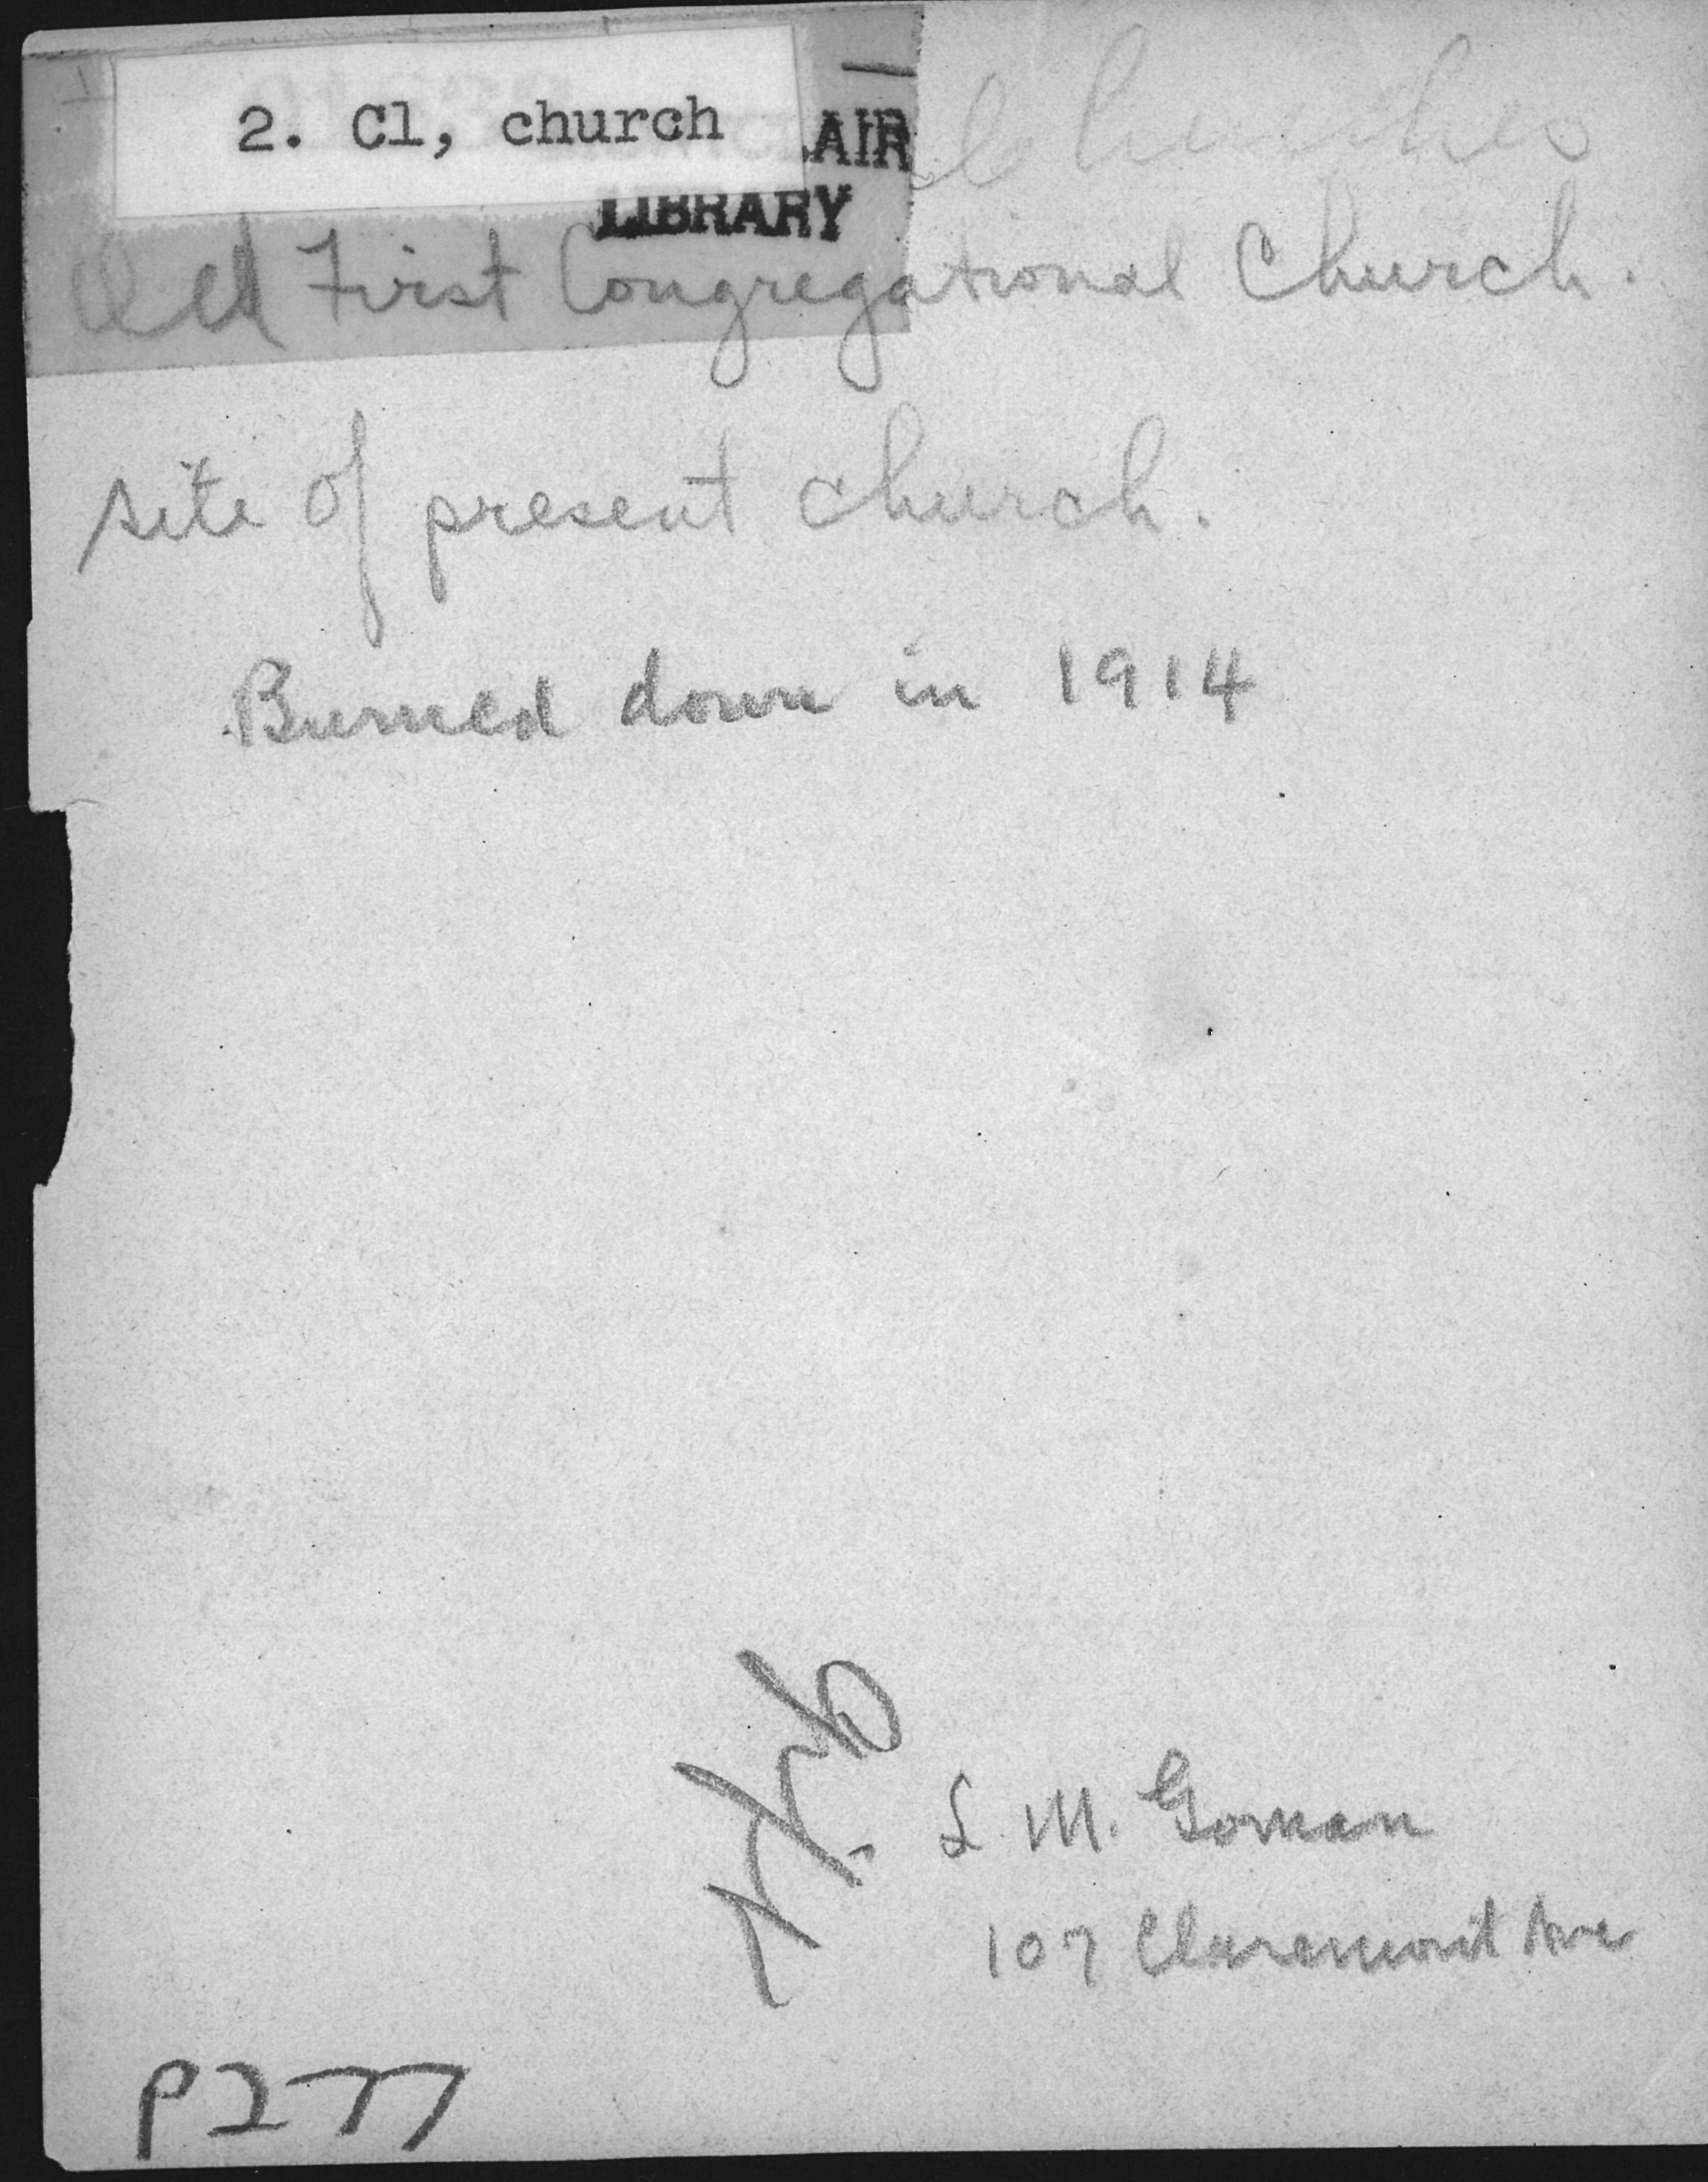 2. Cl, church
AIR
LIBRARY
Churches
Old First Congregational Church.
site of present church.
Burned down in 1914
L. M. Goman
107 Claremont Ave
P277